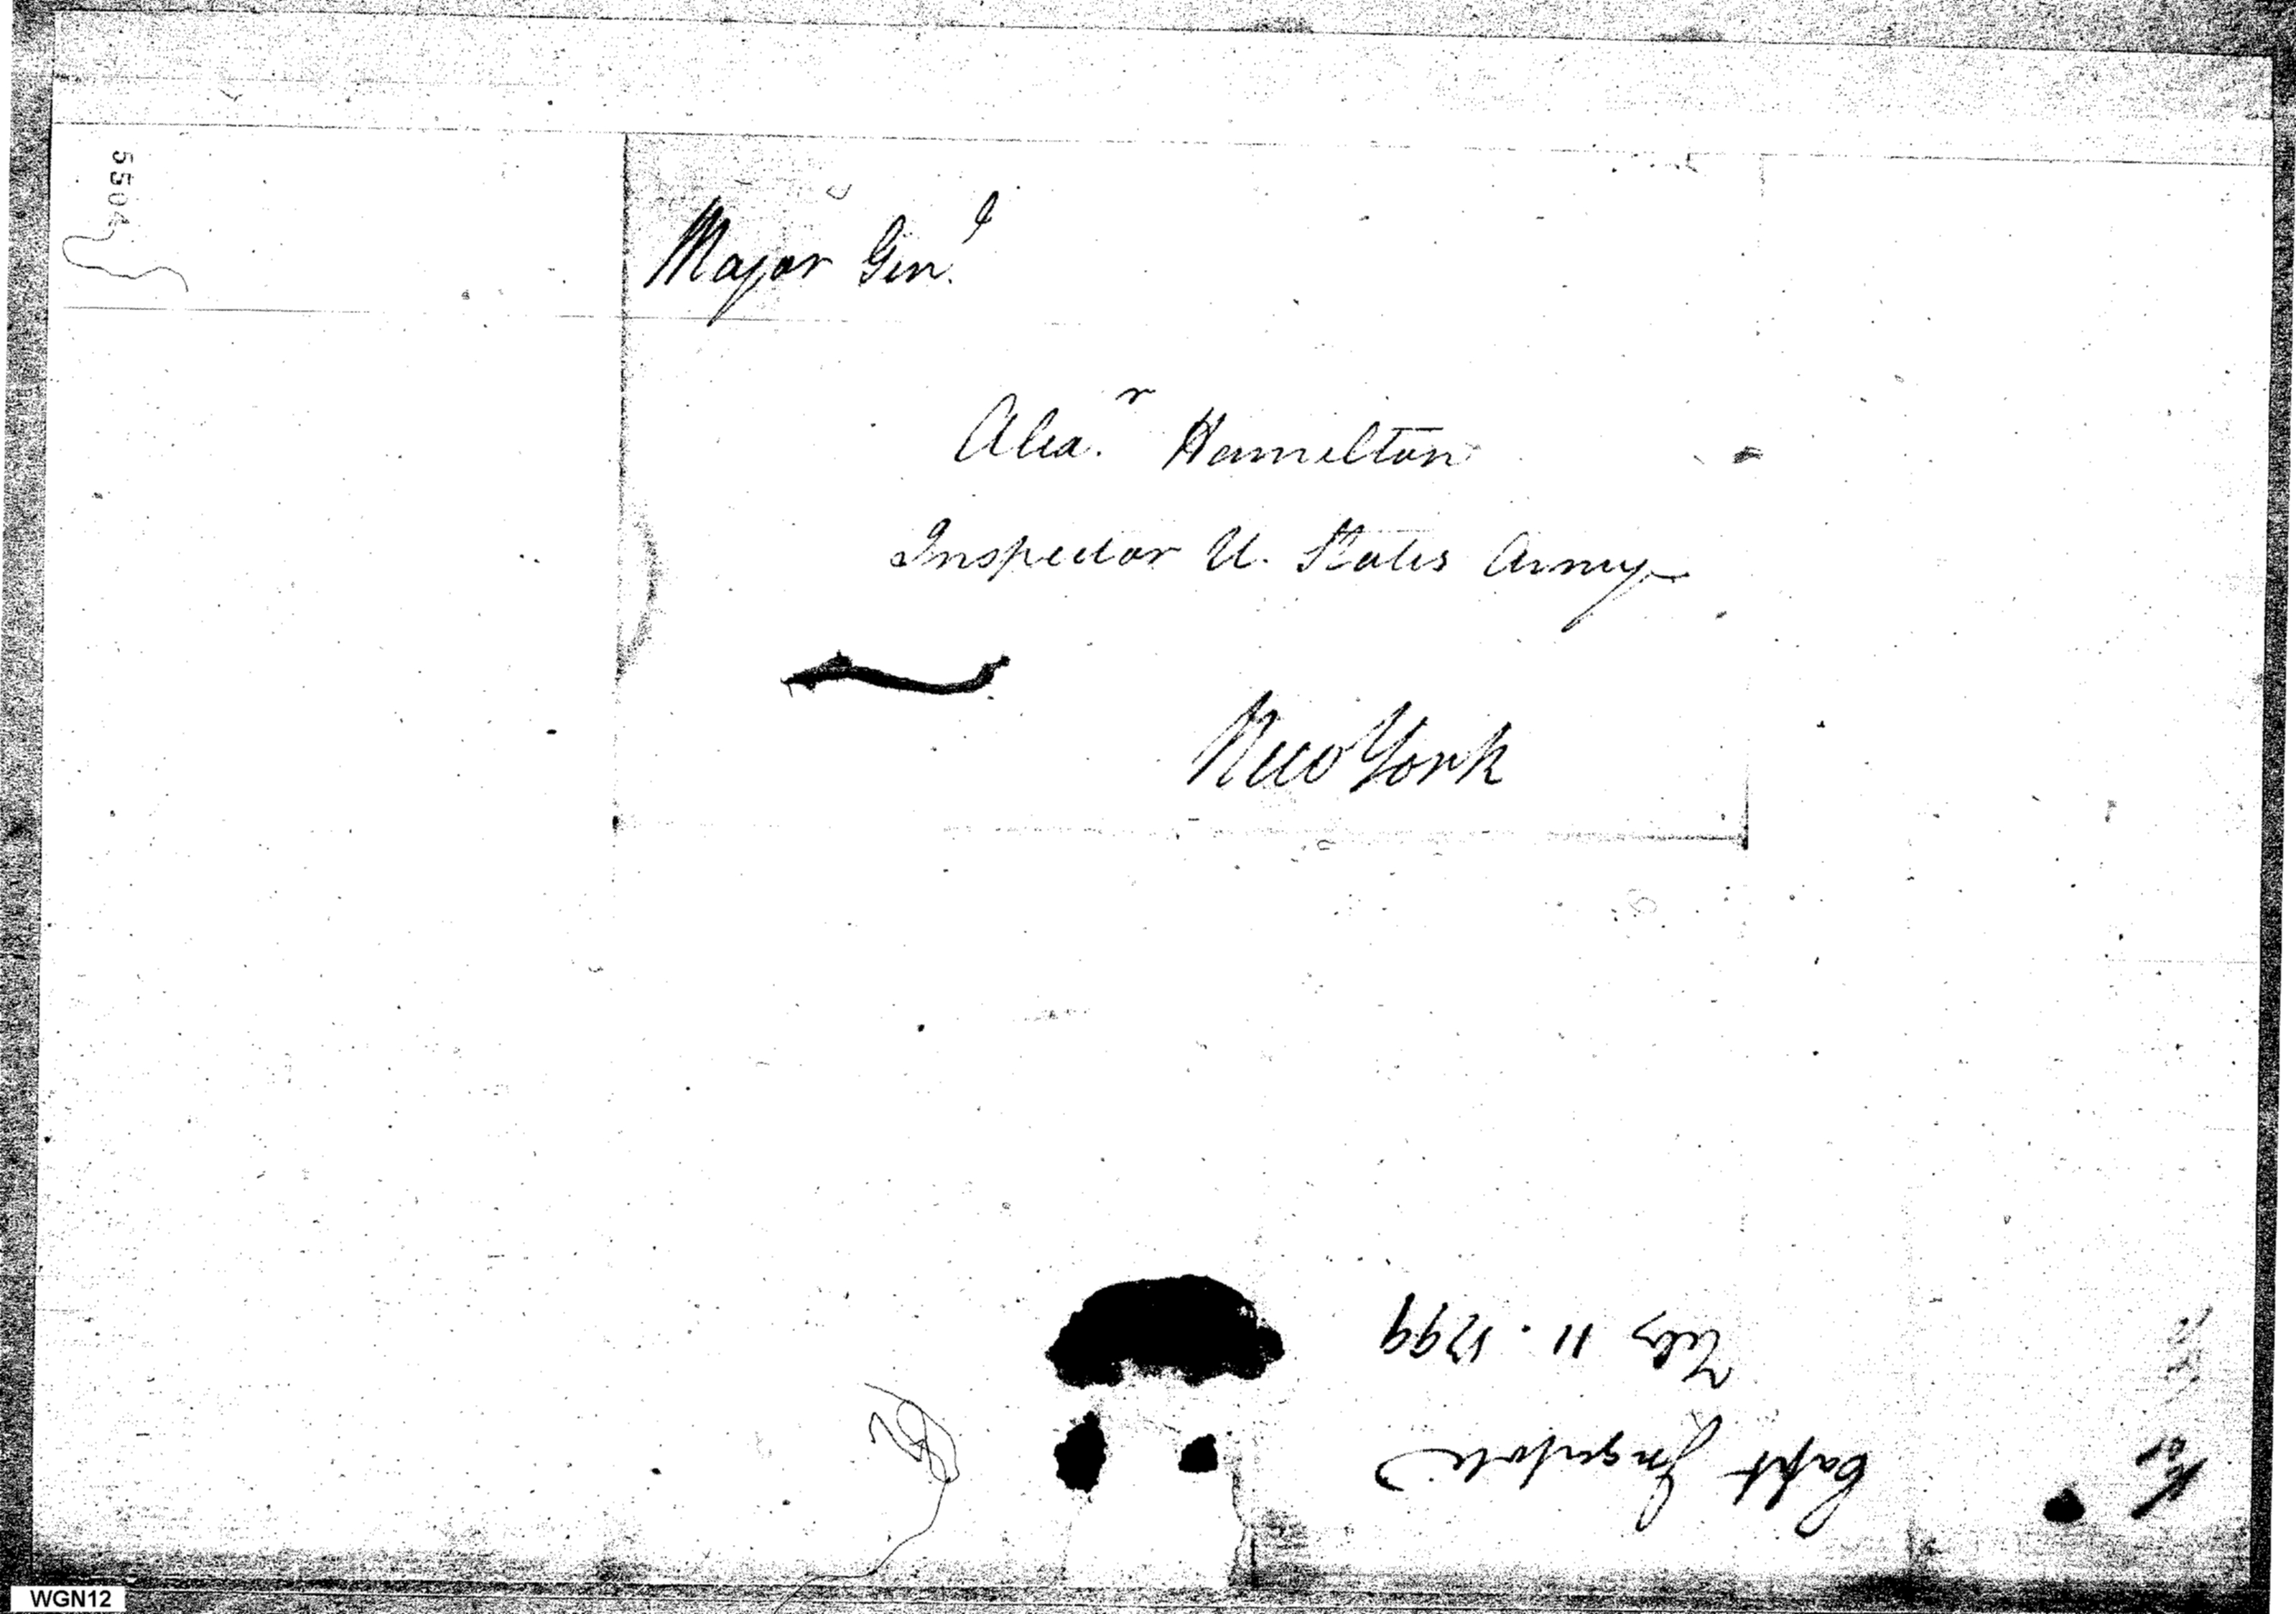 5504
Major Gen.l
Alexa.r Hamilton
Inspector U. States Army
New York
Capt Ingersole
July 11. 1799
WGN12